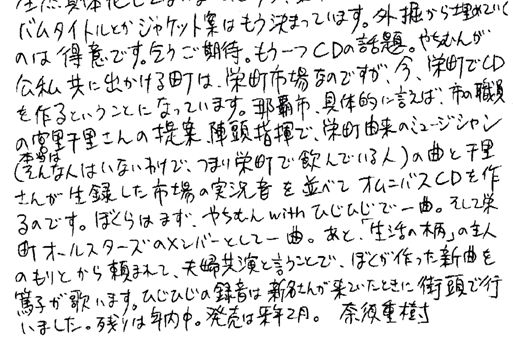 バムタイトルとかジャケット案はもう決まっています。外堀から埋めていく
のは得意です。乞うご期待。もう一つCDの話題。やちむんが
公私共に出かける町は、栄町市場なのですが、今、栄町でCD
を作るということになっています。那覇市、具体的に言えば、市の職員
の宮里千里さんの提案、陣頭指揮で、栄町由来のミュージシャン
(そんな人は本当はいないわけで、つまり栄町で飲んでいる人)の曲と千里
さんが生録した市場の実況音を並べてオムニバスCDを作
るのです。ぼくらはまず、やちむんwithひじひじで一曲。そして栄
町オールスターズのメンバーとして一曲。あと、「生活の柄」の主人
のもりとから頼まれて、夫婦共演と言うことで、ぼくが作った新曲を
篤子が歌います。ひじひじの録音は新名さんが来ていたときに街頭で行
いました。残りは年内中。発売は来年2月。 奈須重樹